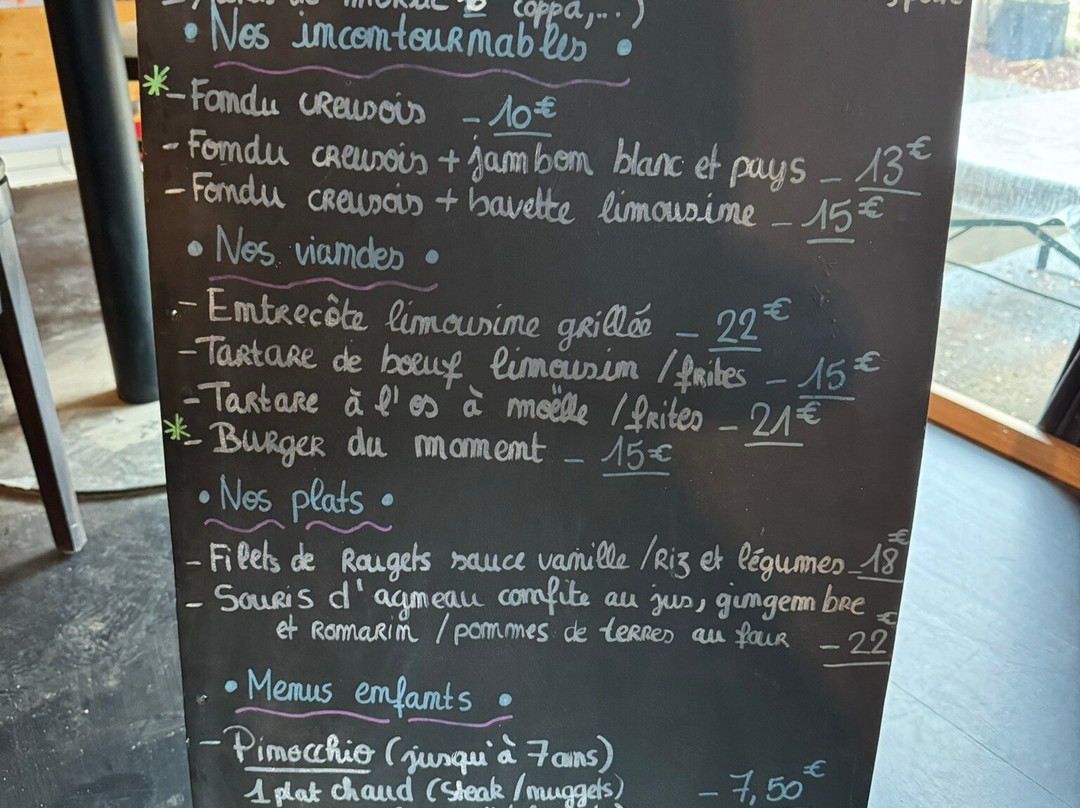 coppa,...)
• Nos incontournables •
* - Fondu creusois - 10€
- Fondu creusois + jambon blanc et pays - 13€
- Fondu creusois + bavette limousine - 15€
• Nos viandes •
- Entrecôte limousine grillée - 22€
- Tartare de boeuf limousin / frites - 15€
- Tartare à l'os à moëlle / frites - 21€
* - Burger du moment - 15€
• Nos plats •
- Filets de Rougets sauce vanille / Riz et légumes - 18€
- Souris d'agneau confite au jus, gingembre
et Romarin / pommes de terres au four - 22€
• Menus enfants •
- Pinocchio (jusqu'à 7 ans)
1 plat chaud (Steak / nuggets) - 7,50€